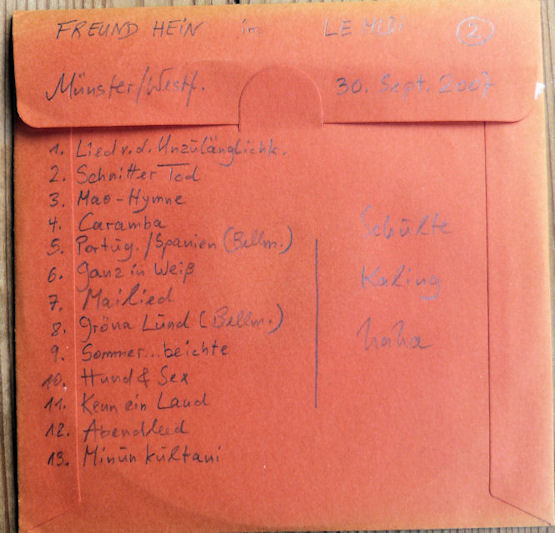 FREUND HEIN in LE MIDI 2
Münster/Westf. 30. Sept. 2007
1. Lied v. d. Unzulänglichk.
2. Schnitter Tod
3. Mao-Hymne
4. Caramba
5. Portug./Spanien (Bellm.)
6. Ganz in Weiß
7. Mailied
8. Gröna Lund (Bellm.)
9. Sommer...beichte
10. Hund & Sex
11. Kenn ein Land
12. Abendlied
13. Minun kultani
haha